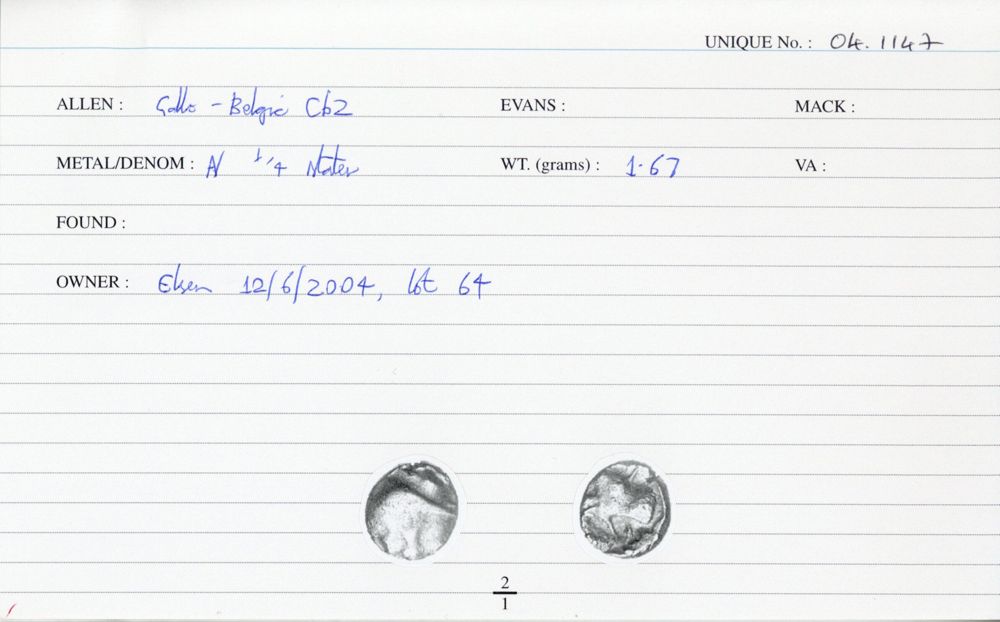 UNIQUE No. : 04.1147
ALLEN : Gallo-Belgic Cb2 EVANS : MACK :
METAL/DENOM : AV 1/4 Stater WT. (grams) : 1.67 VA :
FOUND :
OWNER : Elsen 12/6/2004, lot 64
2
1